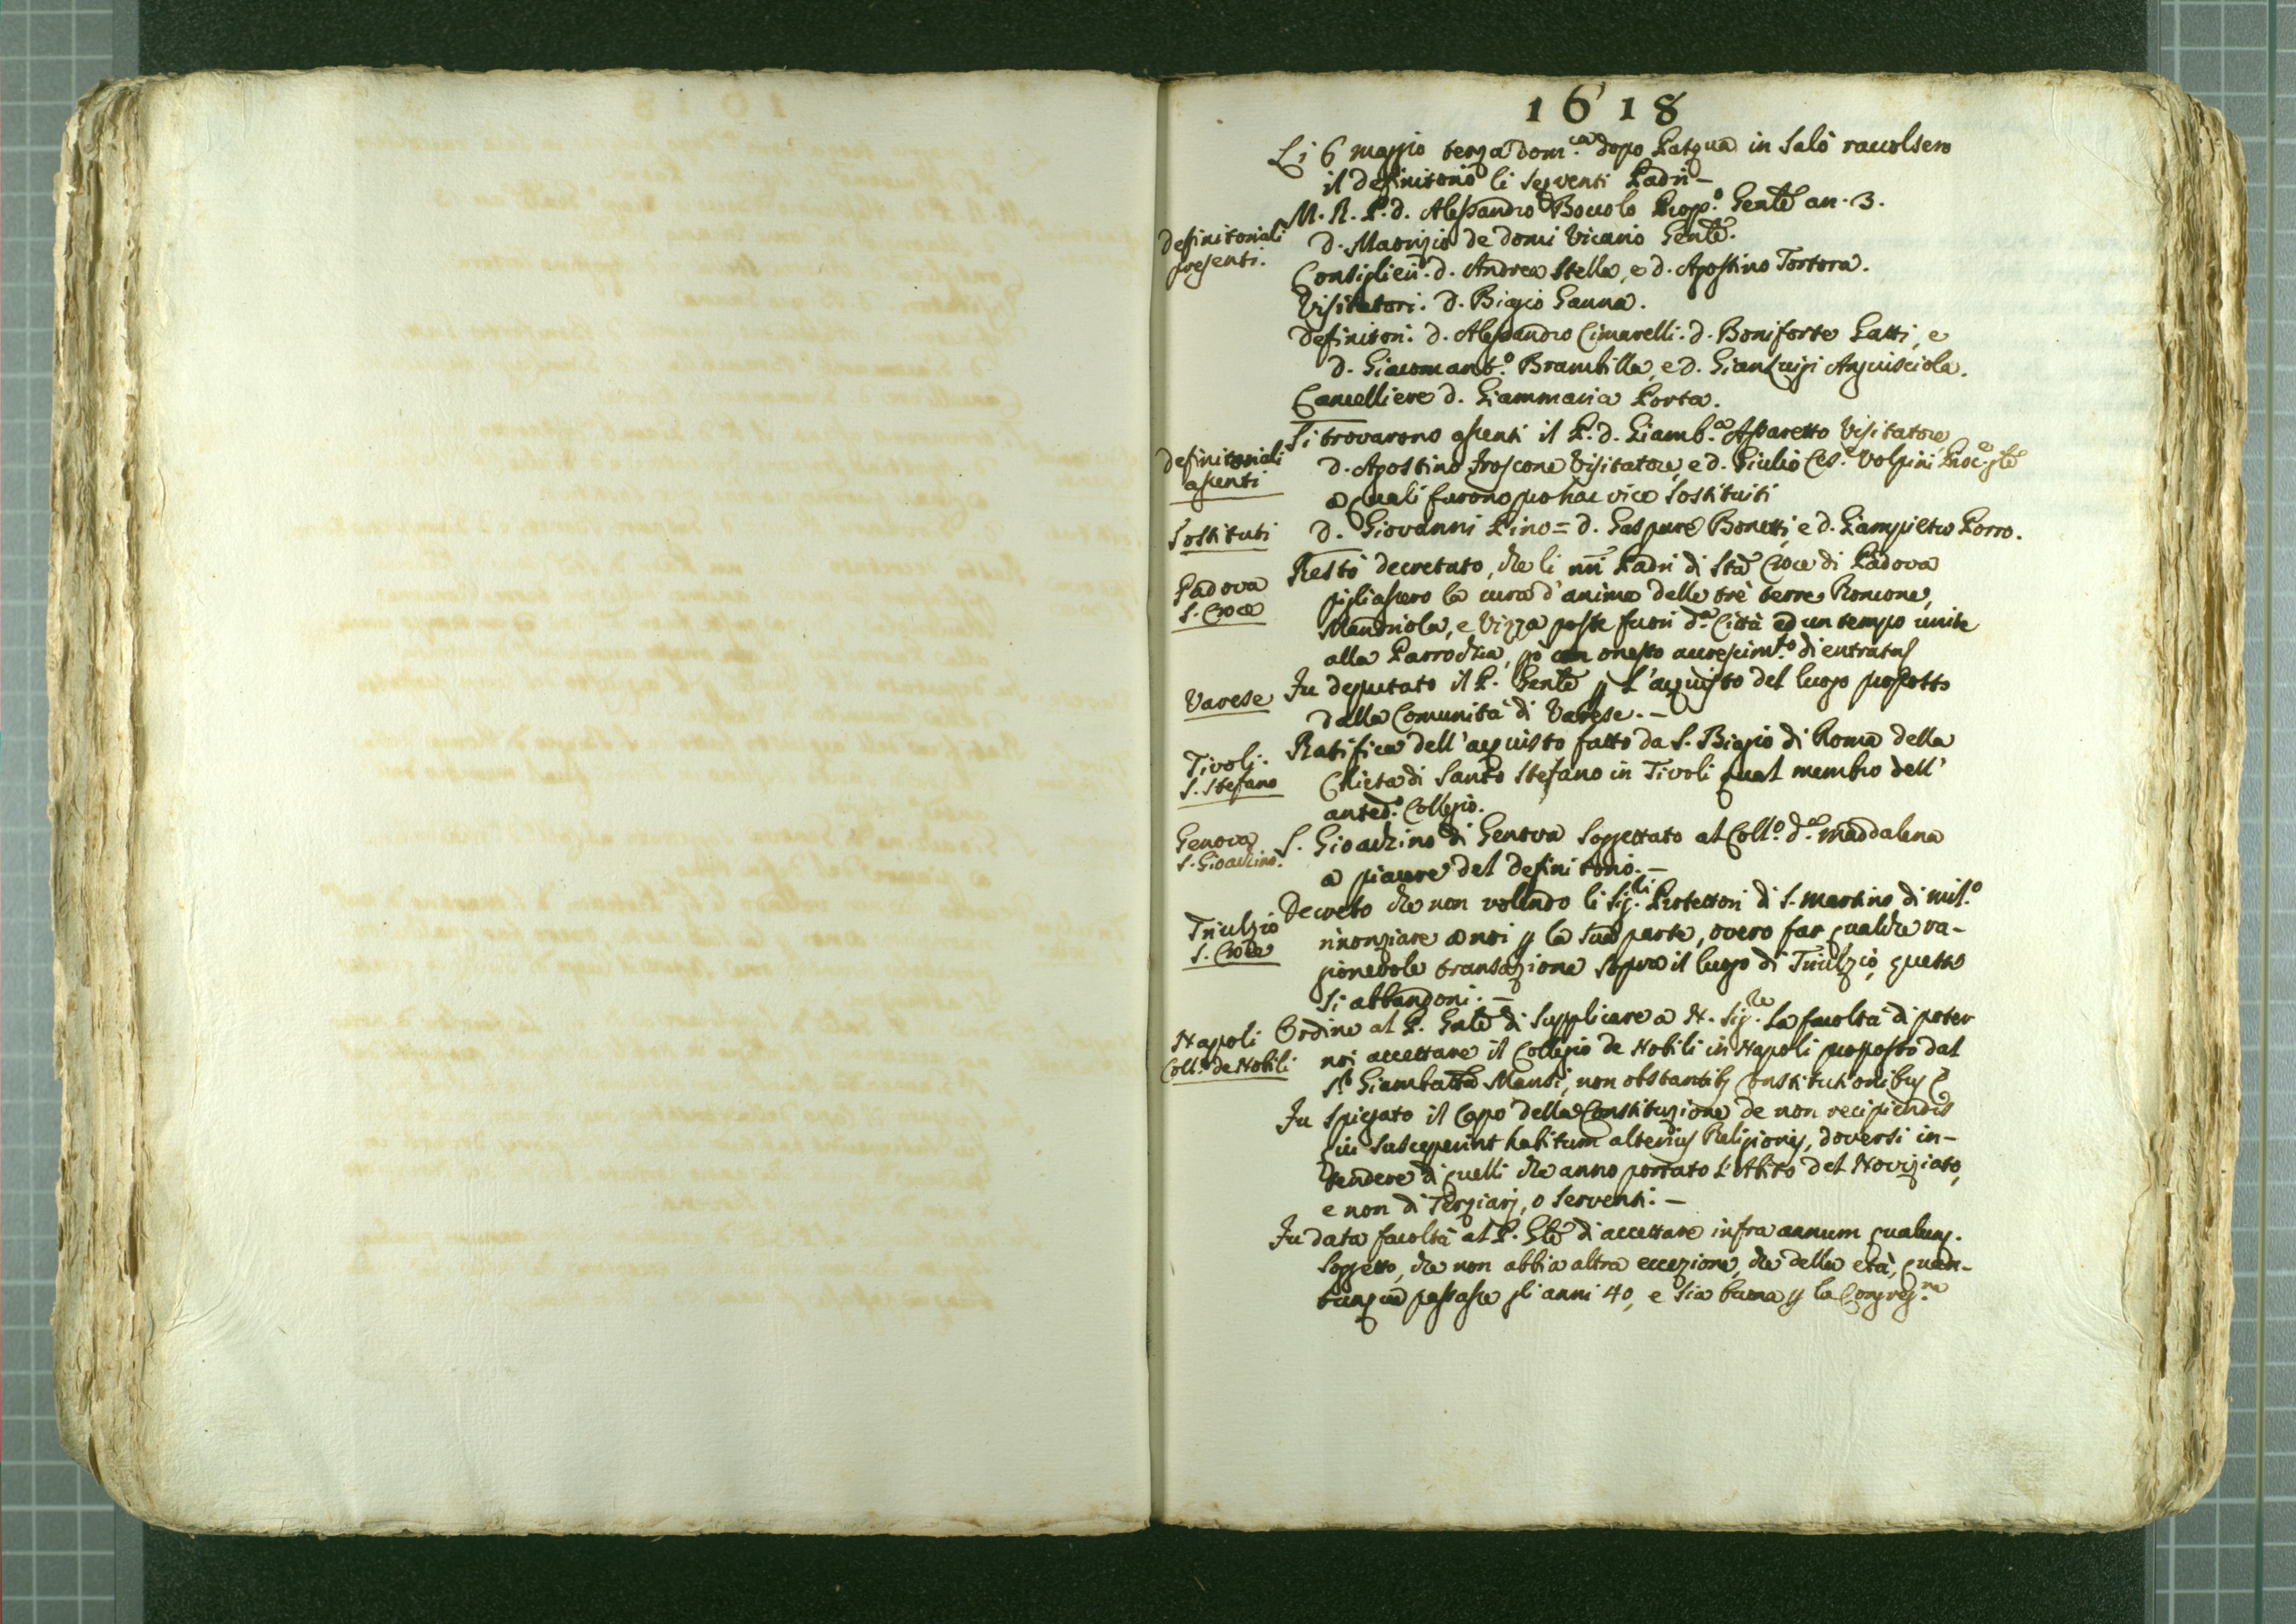 1618
Li 6 maggio terza Dom.ca dopo Pasqua in Salò raccolsero
il definitorio li seguenti Padri -
M. R. P. d. Alessandro Boccolo Prop.o Genle an. 3.
definitoriali
presenti.
d. Maurizio de Domi Vicario Genle.
Consiglieri. d. Andrea Stella, e d. Agostino Tortora.
Visitatori. d. Biagio Ganna.
Definitori. d. Alessandro Cimarelli. d. Boniforte Gatti, e
d. Giacomant.o Brambilla, e d. GianLuigi Anguisciola.
Cancelliere d. Giammaria Porta.
definitoriali
assenti
Si trovarono assenti il P. d. Giamb.a Assaretto Visitatore
d. Agostino Froscone Visitatore, e d. Giulio Ces.e Volpini Proc.e gle
a quali furono pro hac vice sostituiti
Sostituti
d. Giovanni Pino = d. Gaspare Bonetti, e d. Giampietro Porro.
Padova
S. Croce
Restò decretato, che li nri Padri di Sta Croce di Padova
pigliassero la cura d'anime delle trè terre Roncone,
Mandriola, e Vizza poste fuori d.a Città ed un tempo unite
alla Parrochia, pò con onesto accrescim.to di entrata
Varese
Fu deputato il P. Genle p l'acquisto del luogo proposto
dalla Comunità di Varese. -
Tivoli.
S. Stefano
Ratifica dell'acquisto fatto da S. Biagio di Roma della
Chieta di Santo Stefano in Tivoli qual membro dell'
anted.o Collegio.
Genova
S. Gioachino.
S. Gioachino di Genova soggettato al Coll.o d.a Maddalena
a piacere del Definitorio. -
Triulzio
S. Croce
Decreto che non volendo li Sig.ri Protettori di S. Martino di Mil.o
rinonziare a noi p la sua parte, overo far qualche ra-
gionevole transazione sopra il luogo di Triulzio, questo
si abbandoni. -
Napoli
Coll.o de Nobili
Ordine al P. Gnle di supplicare a N. Sig.re la facoltà di poter
noi accettare il Collegio de Nobili in Napoli proposto dal
Sr Giambatta Mansi, non obstantib; Constitutionibus
Fu spiegato il Capo della Constituzione de non recipiendis
qui susceperint habitum alterius Religionis, doversi in-
tendere di quelli che anno portato l'Abito del Noviziato,
e non di Terziarj, o Serventi. -
Fu data facoltà al P. Gle di accettare infra annum qualunq.
soggetto, che non abbia altra eccezione, che della età, quan-
tunque passasse gli anni 40, e sia buona p la Congreg.ne